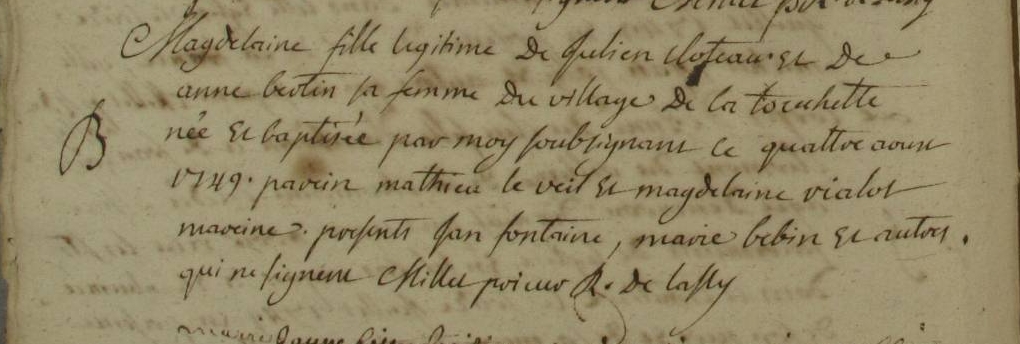 Magdelaine fille legitime De Julien cloteau et De
anne bertin sa femme Du village De la touchette
B née et baptisée par moy soubsignant ce quattre aoust
1749. parein mathieu le veil et magdelaine vialot
mareine. presents Jan fontaine, marie bebin et autres.
qui ne signent Millet prieur R. De lassy